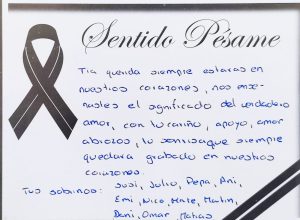 Sentido Pésame
Tia querida siempre estaras en
nuestros corazones, nos ense-
ñastes el significado del verdadero
amor, con tu cariño, apoyo, amor
abrazos, tu sonrisa que siempre
quedara grabado en nuestros
corazones.
Tus sobrinos: Susi, Julio, Pepa, Ani,
Emi, Nico, Mate, Martin,
Dani, Omar, Matias